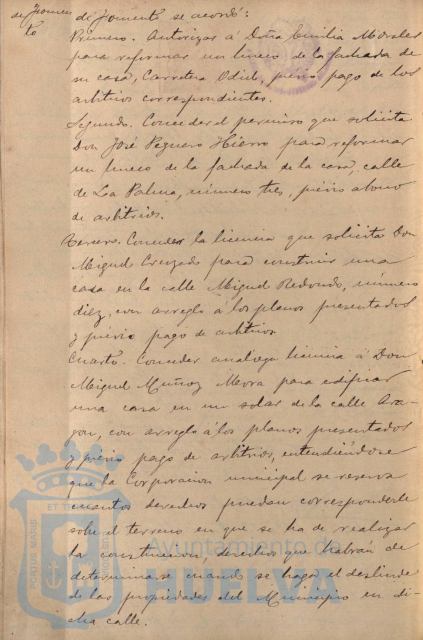 de Fomen
to
de Fomento se acordó:
Primero. Autorizar á Doña Emilia Morales
para reformar un hueco de la fachada de
su casa, Carretera Odiel, previo pago de los
arbitrios correspondientes.
Segundo. Conceder el permiso que solicita
Don José Peguero Hierro para reformar
un hueco de la fachada de la casa, calle
de La Palma, número tres, previo abono
de arbitrios.
Tercero. Conceder la licencia que solicita Don
Miguel Cruzado para construir una
casa en la calle Miguel Redondo, número
diez, con arreglo á los planos presentados
y previo pago de arbitrios
Cuarto. Conceder análoga licencia á Don
Miguel Muñoz Mora para edificar
una casa en un solar de la calle Ara-
gon, con arreglo á los planos presentados
y previo pago de arbitrios, entendiéndose
que la Corporacion municipal se reserva
cuantos derechos puedan corresponderle
sobre el terreno en que se ha de realizar
la construccion, derechos que habrán de
determinarse cuando se haga el deslinde
de las propiedades del Municipio en di-
cha calle.
PORTUS MARIS
ET TERRAE
Ayuntamiento de
HUELVA